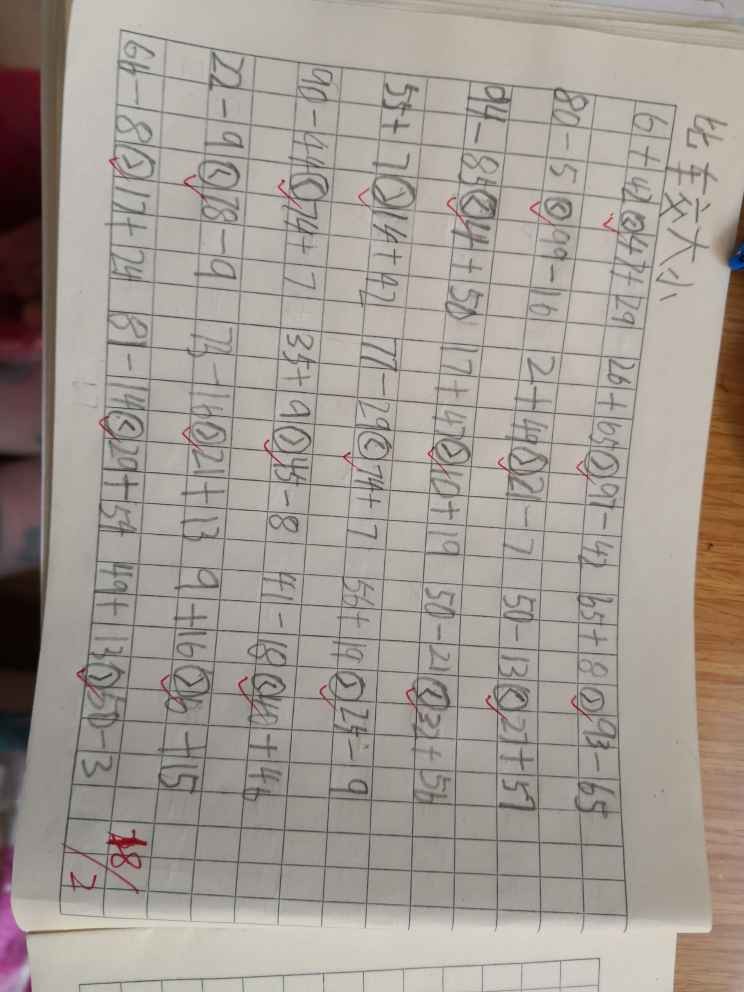 比较大小
6+42<47+29 26+65>97-42 65+18>93-65
80-15<99-16 2+49>21-7 50-13<27+57
94-85<44+50 17+47>10+19 50-21<32+56
55+7>14+42 77-29<74+7 56+19>24-9
90-44<74+7 35+9>45-8 41-18<40+46
22-9<78-9 73-16>21+13 9+16>6+15
64-8>17+24 81-14<29+54 49+13>50-3
18/7